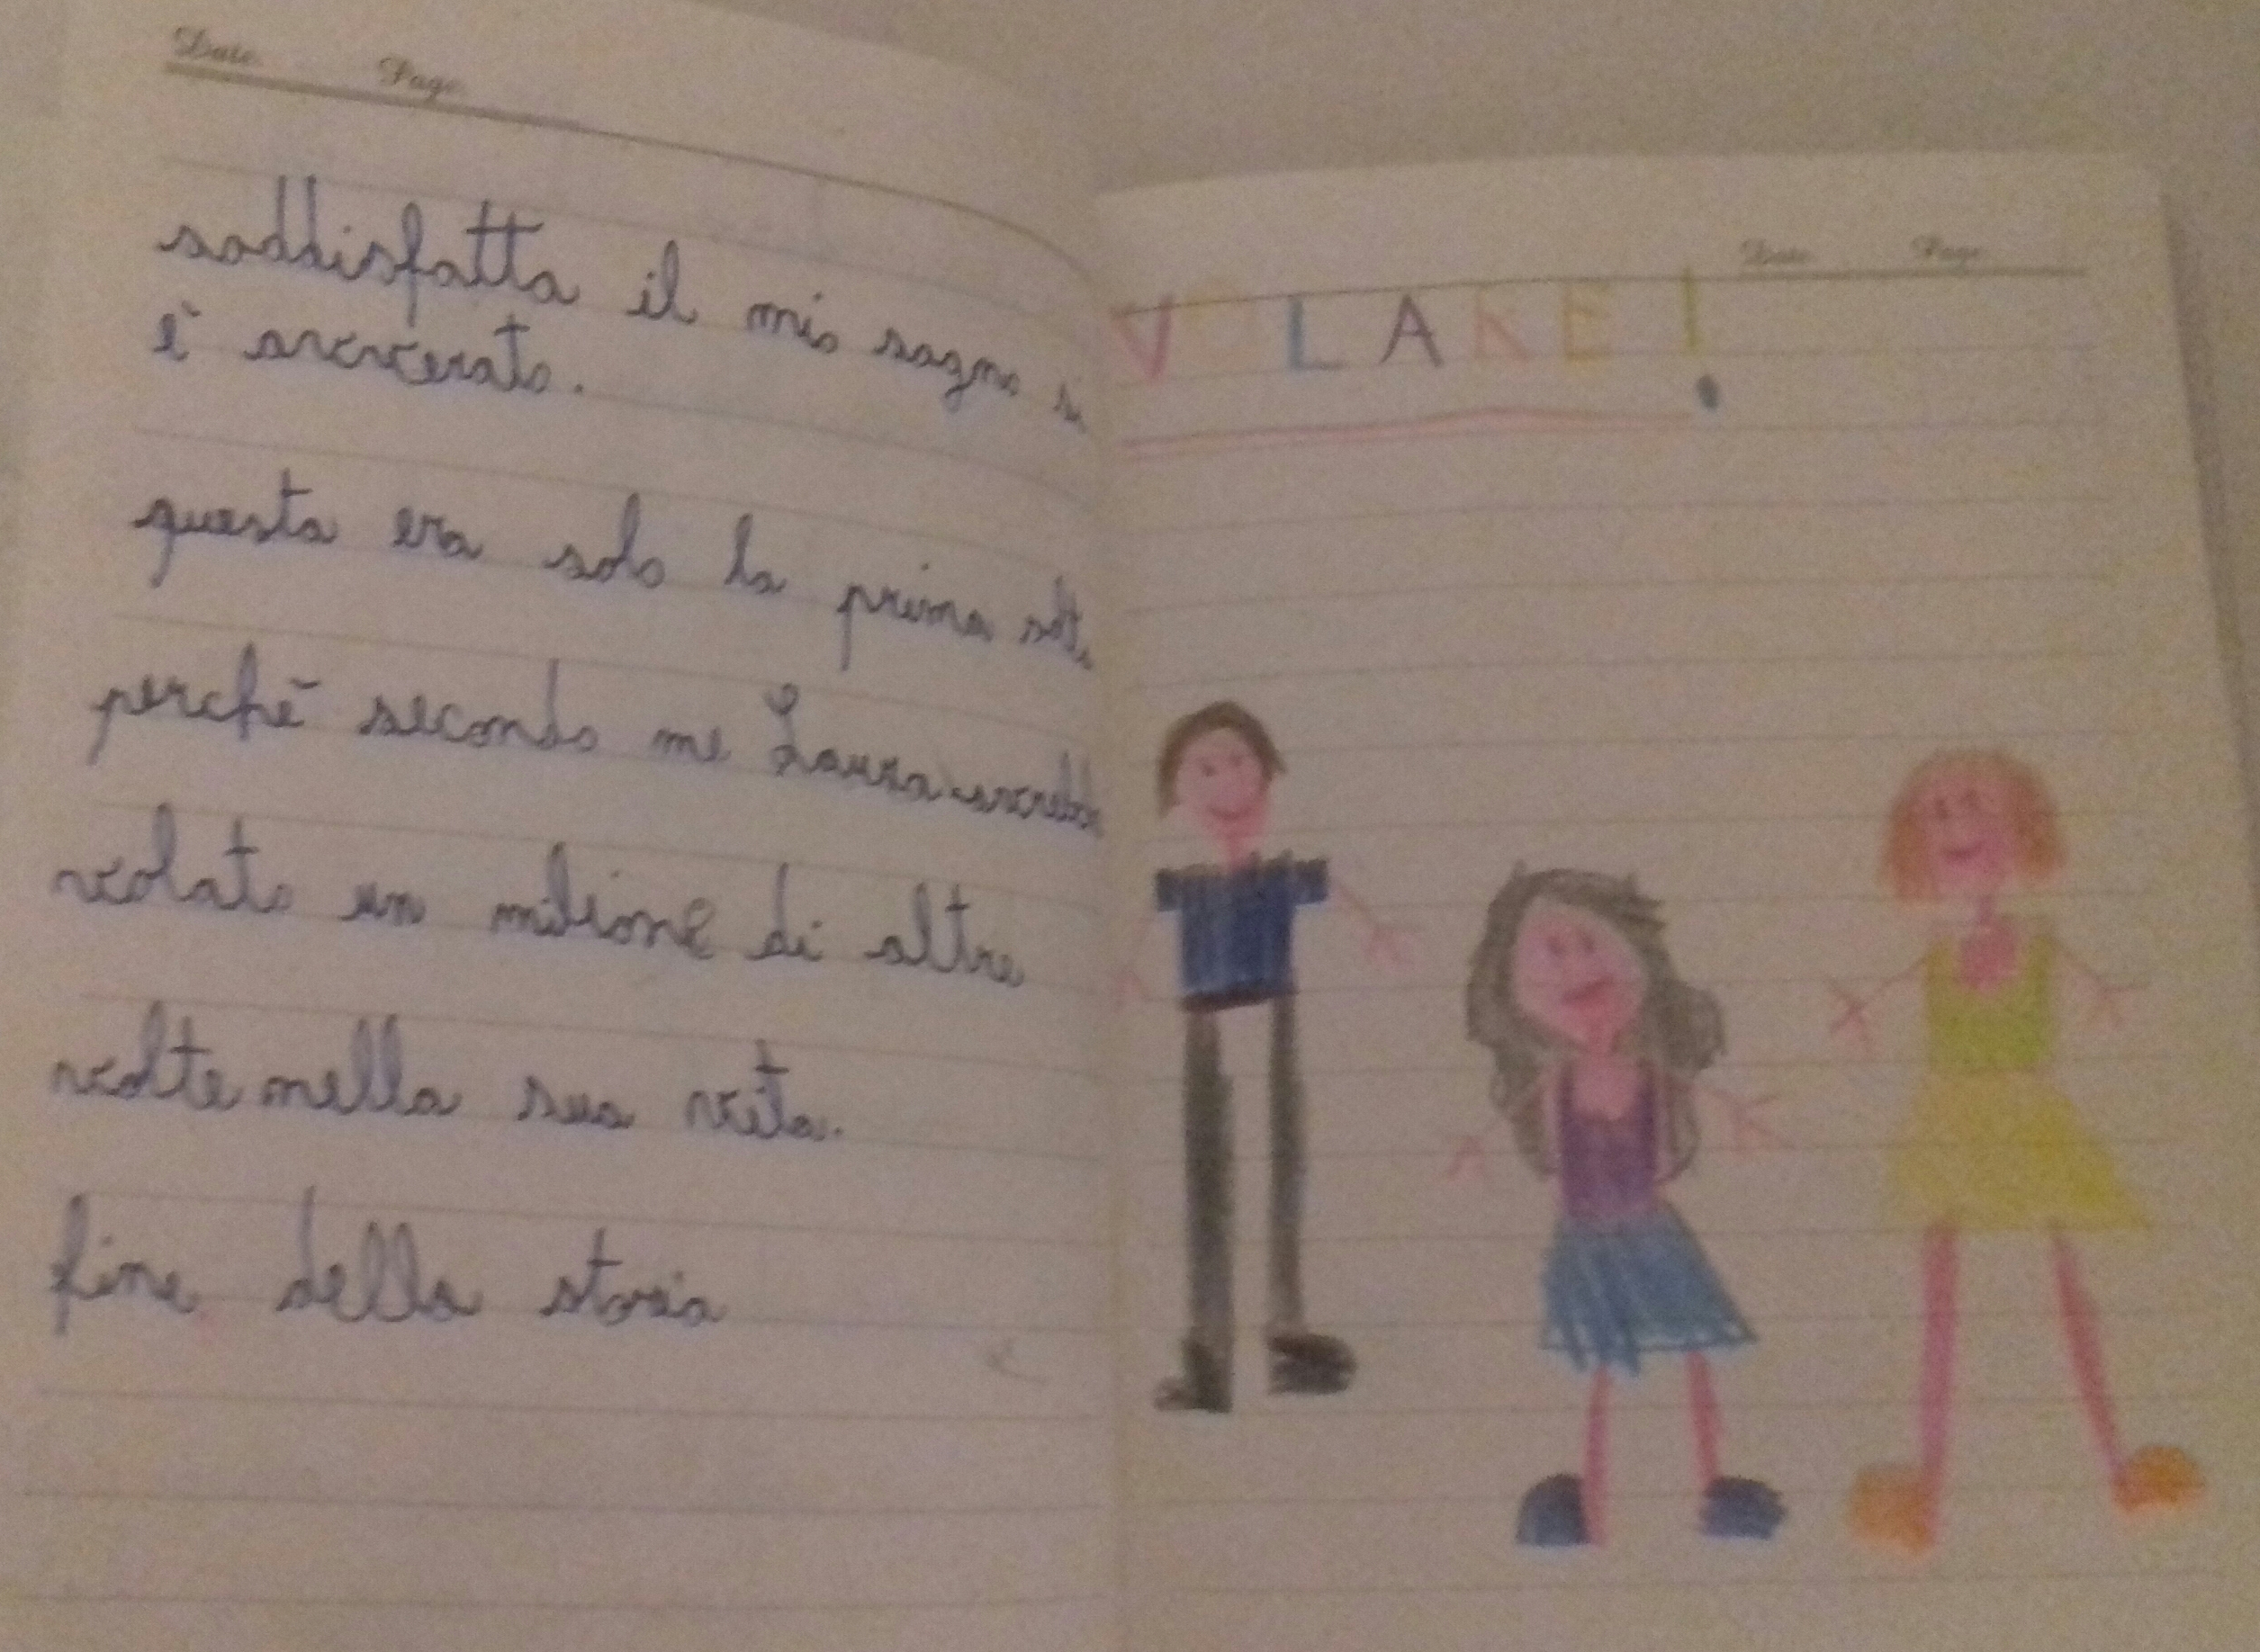 Date Page
soddisfatta il mio sogno si
è avverato.
questa era solo la prima
perchè secondo me Laura
volato un milione di altre
volte nella sua vita.
fine della storia
Date Page
V LAKE!